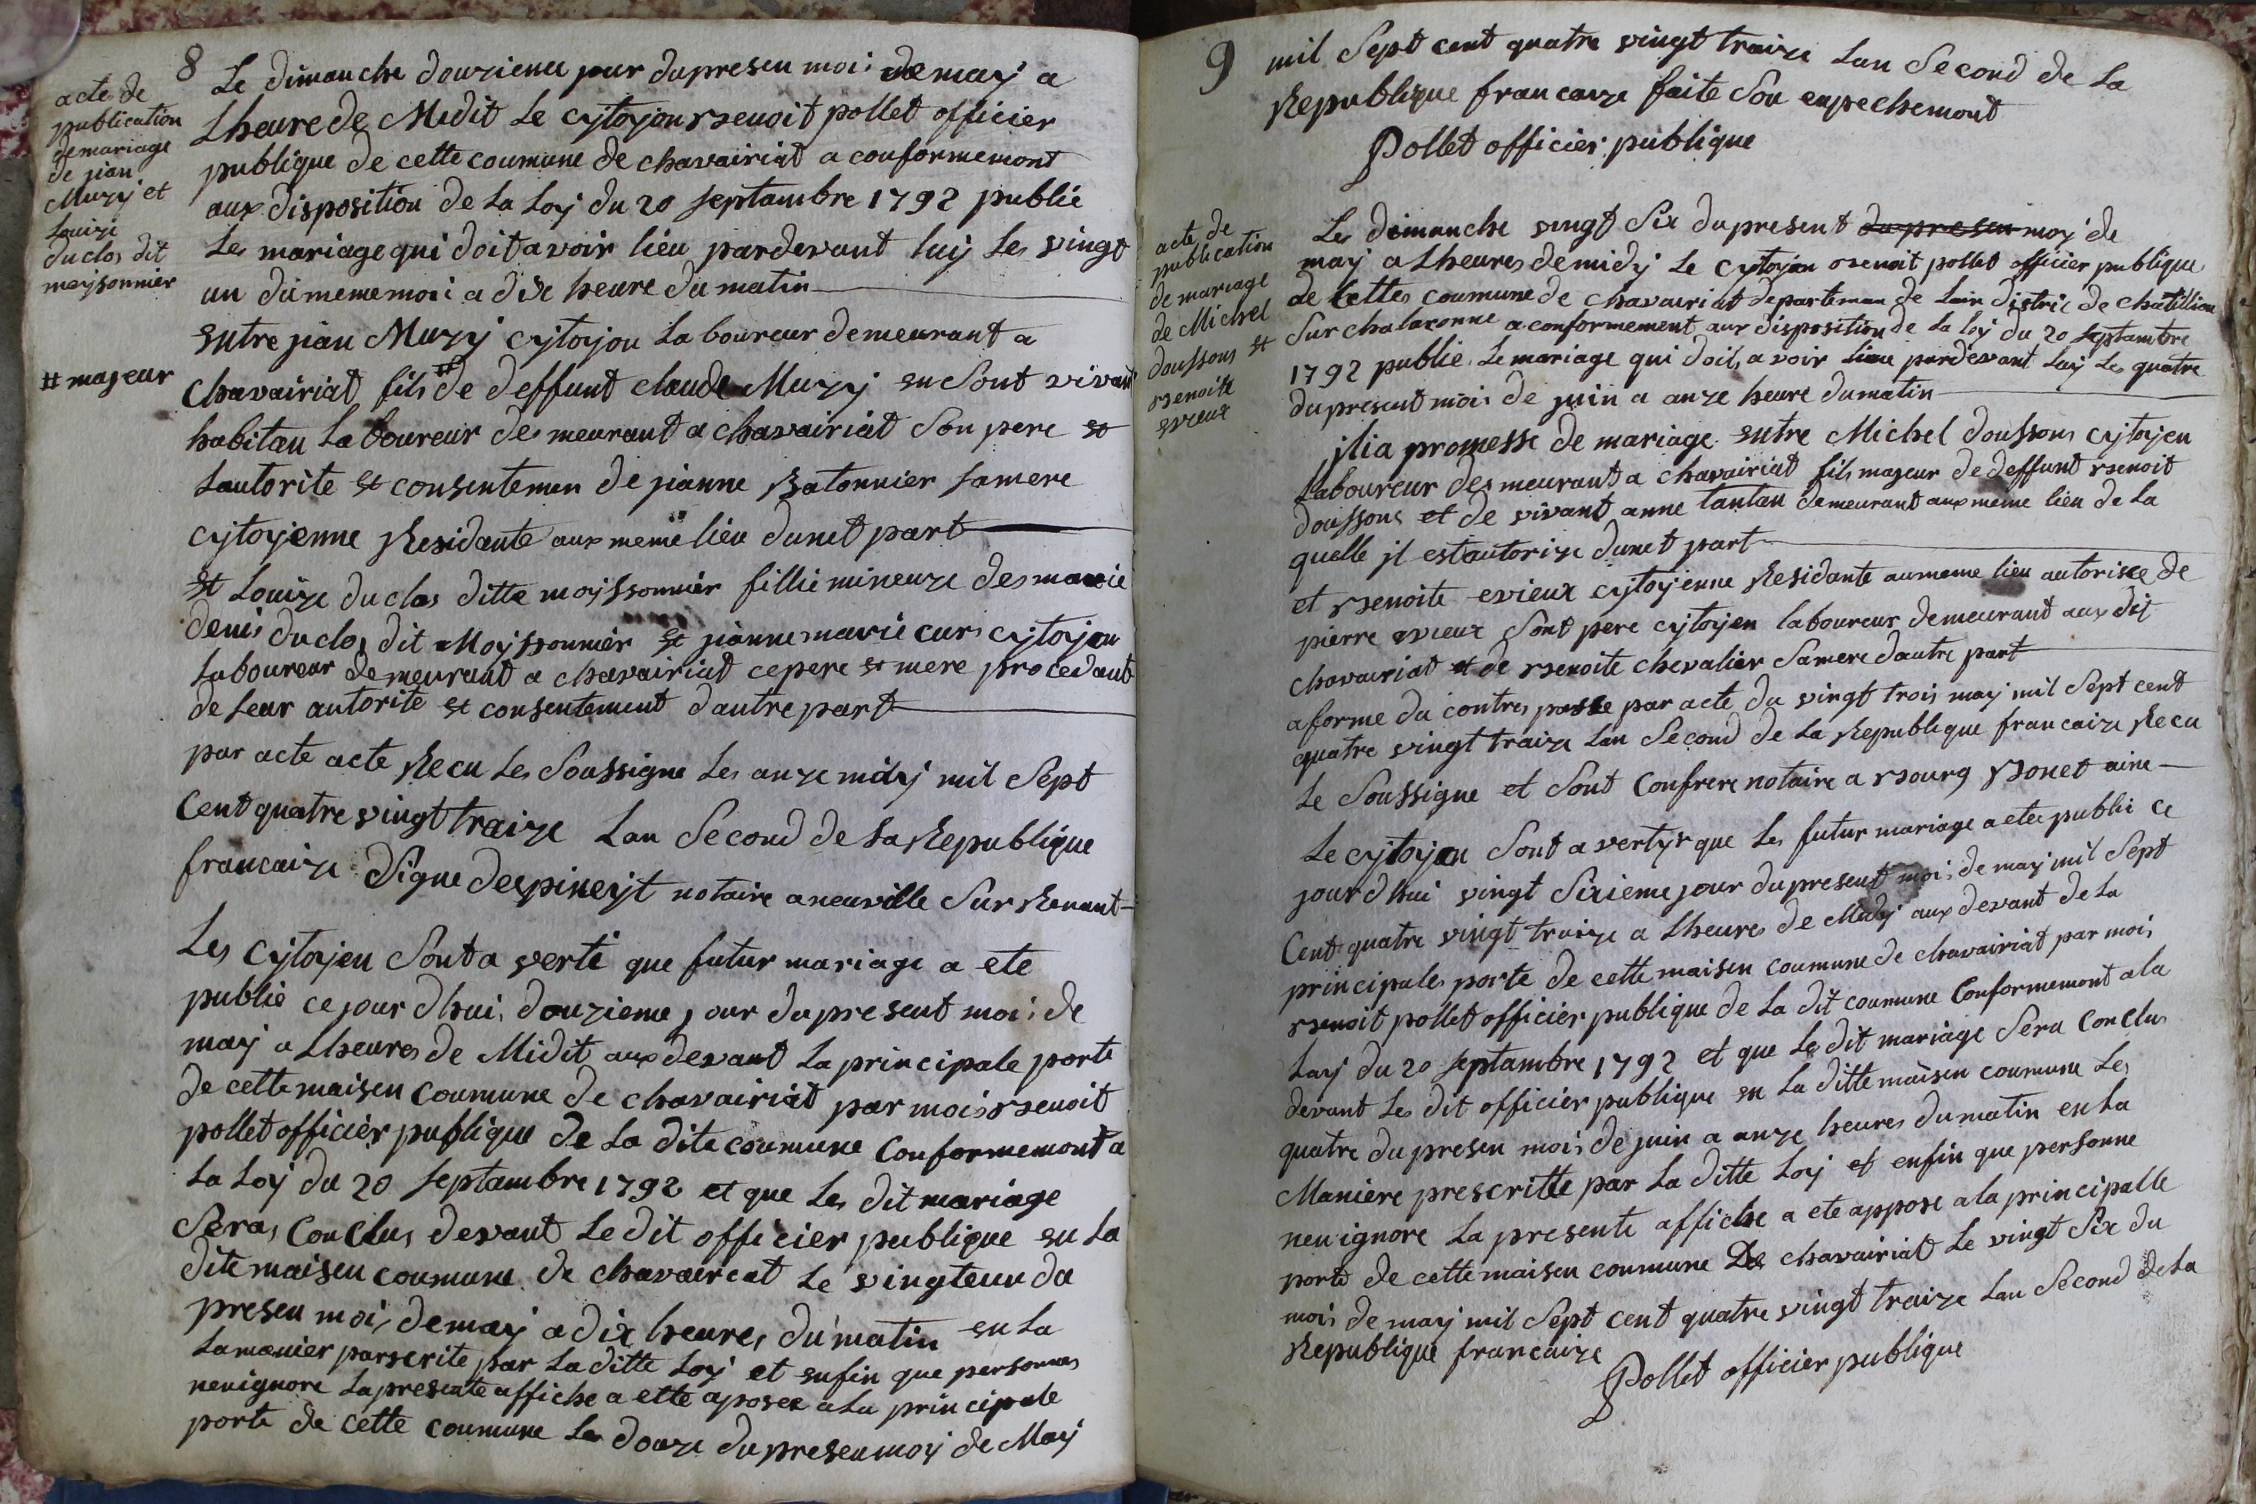 8
acte de
publication
de mariage
de jian
Muzy et
Louize
duclos dit
moyssonnier
Le dimanche douzieme jour dupresen moi de may a
Lheure de Midit Le cytoyon Benoit pollet officier
publique de cette coumune de chavairiat a conformemont
aux disposition de La Loy du 20 septambre 1792 publie
Les mariage qui doit avoir lieu pardevant luy Les vingt
un du meme moi a dix heure du matin
entre jian Muzy cytoyon Laboureur demeurant a
# majeur
chavairiat fils # de deffunt claude Muzy en sont vivant
habitan Laboureur des meurant a chavairiat Son pere et
Lautorite et consentemen de jianne Batonnier samere
cytoyenne Residante aux meme lieu dunet part
et Louize duclos ditte moyssonnier fillie mineuze des
denis duclos dit Moyssonnier et jianne marie curs cytoyon
Laboureur demeurant a chavairiat cepere et mere procedant
de Leur autorite et consentement dautre part
par acte acte Recu Les Soussigne Les anze midy mil Sept
Cent quatre vingt traize Lan Second de La Republique
francaize Signe despineyt notaire a neuville Sur Renant
Les Cytoyen Sont a verti que futur mariage a ete
publie ce jour dhui douzieme jour dupresent moi de
may a Lheures de Midit aux devant La principale porte
de cette maisen Coumune de chavairiat par moi Benoit
pollet officier publique de La dite coumune Conformemont a
La Loy du 20 septambre 1792 et que Les dit mariage
Seras Conclus devant Le dit officier publique en La
dite maisen coumune de chavaireat Le vingteun du
presen moi de may a dix heures du matin en La
La manier parscrite par La ditte Loy et enfin que personnes
nenignore La presente affiche a ette aposee a La principale
porte de cette coumune Le douze du presen moy de May
9
mil Sept cent quatre vingt traize Lan Second de La
Republique francaize faite Son enpechemont
Pollet officier publique
acte de
publication
de mariage
de Michel
doussons et
Benoite
evieux
Les dimanche vingt Six dupresent du presen moy de
may a Lheures de midy Le cytoyon Benoit pollet officier publique
de Cettes coumune de chavairiat departeman de Lain distric de chatillion
Sur chalaronne a conformement aux disposition de La loy du 20 Septambre
1792 publie Le mariage qui doit avoir lieu pardevant Luy Les quatre
dupresent moi de juin a anze heure du matin
jlia promesse de mariage entre Michel doussons cytoyen
Laboureur des meurant a chavairiat fils majeur de deffunt Benoit
doussons et de vivant anne tantan demeurant aux meme lieu de La
quelle jl est autorize dunet part
et Benoite evieux cytoyenne Residante au meme lieu autorisee de
pierre evieux Sont pere cytoyen laboureur demeurant aux dit
chavairiat et de Benoite chevalier Samere dautre part
a forme du contres passe par acte du vingt trois may mil Sept cent
quatre vingt traize Lan Second de La Republique francaize Recu
Le Soussigne et Sont Confrere notaire a Bourg Bonet aine
Le cytoyen Sont a vertyr que Les futur mariage a etee publie ce
jour dhui vingt Sixieme jour dupresent moi de may mil Sept
Cent quatre vingt traize a Lheures de Midy aux devant de La
principales porte de cette maisen coumune de chavairiat par moi
Benoit pollet officier publique de La dit coumune Conformemont a la
Loy du 20 septambre 1792 et que Le dit mariage Sera Conclus
devant Les dit officier publique en La ditte maisen coumune Les
quatre du presen mois de juin a anze heures du matin en La
Maniere prescritte par La ditte Loy et enfin que personne
nen ignore La presente affiche a ete appose a la principalle
porte de cette maisen coumune De chavairiat Le vingt Six du
mois de may mil Sept cent quatre vingt traize Lan Second de La
Republique francaize
Pollet officier publique